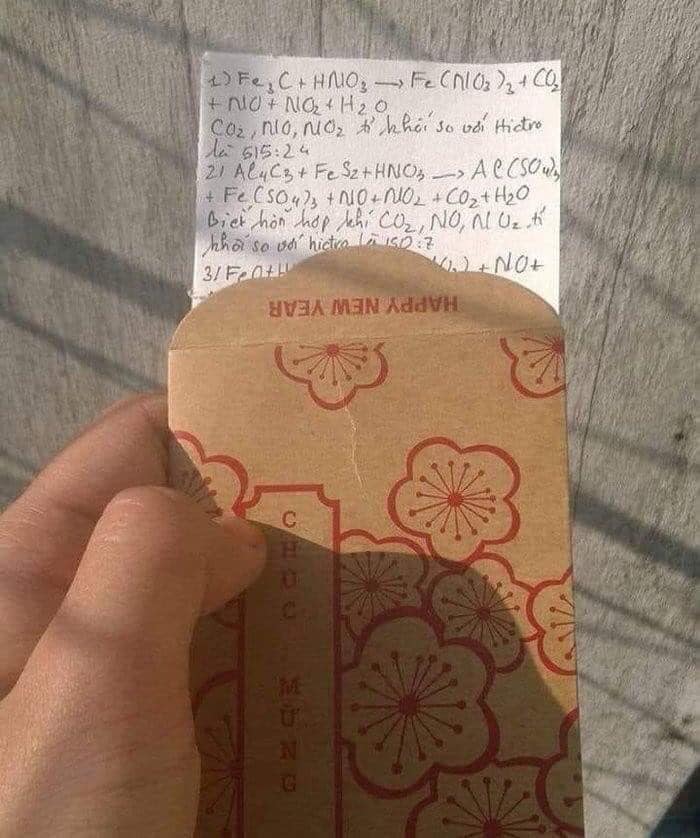 1) Fe3C + HNO3 → Fe(NO3)3 + CO2
+ NO + NO2 + H2O
CO2, NO, NO2 tỉ khối so với Hiđro
là 515:24
2) Al4C3 + FeS2 + HNO3 → Al2(SO4)3
+ Fe(SO4)3 + NO + NO2 + CO2 + H2O
Biết hỗn hợp khí CO2, NO, NO2 tỉ
khối so với hiđro là 150:7
3) FeO + H
) + NO +
HAPPY NEW YEAR
CHÚC MỪNG